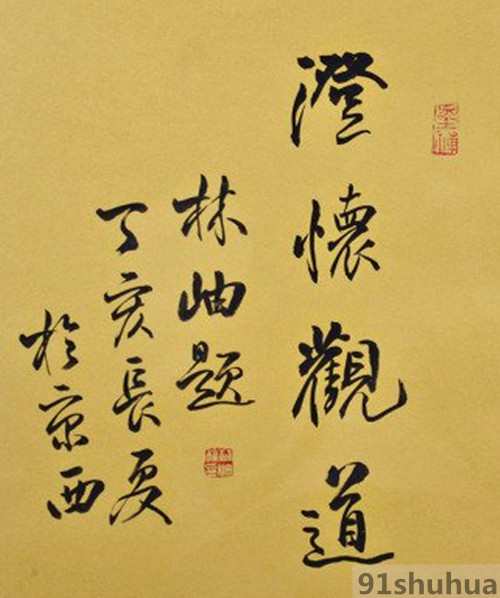 澄懷觀道
林岫題
丁亥長夏
於京西
91shuhua